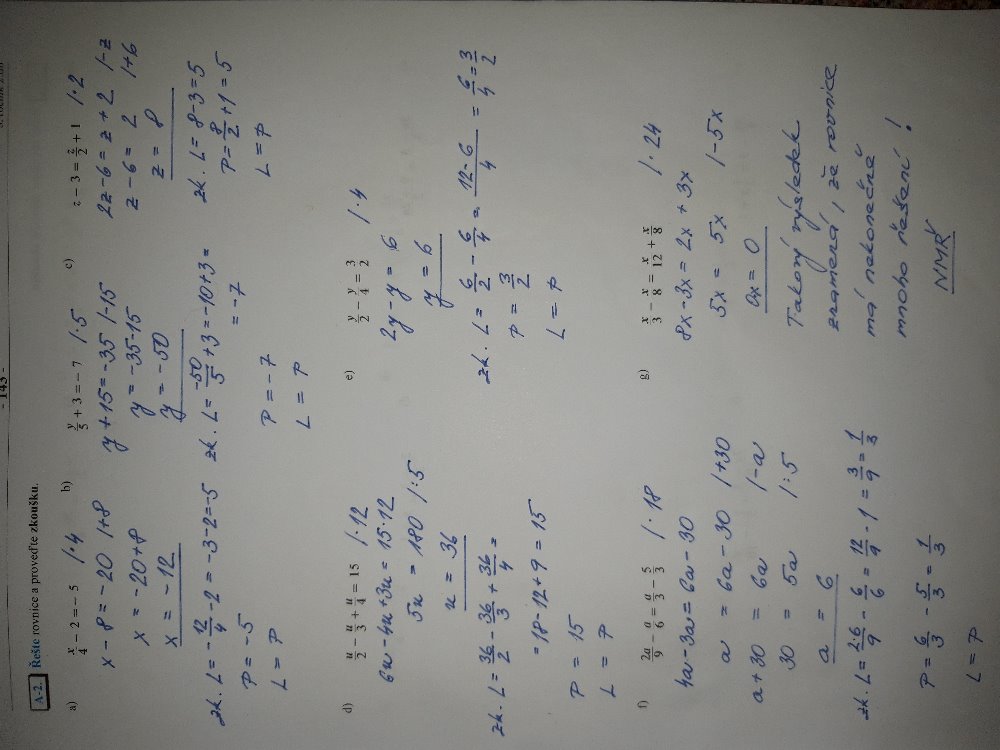 - 143 -
A-2. Řešte rovnice a proveďte zkoušku.
a) x/4 - 2 = - 5 /·4
x - 8 = -20 /+8
x = -20+8
x = -12
zk. L = -12/4 - 2 = -3-2=-5
P = -5
L = P
b) y/5 + 3 = - 7 /·5
y + 15 = -35 /-15
y = -35-15
y = -50
zk. L = -50/5 + 3 = -10+3 =
= -7
P = -7
L = P
c) z - 3 = z/2 + 1 /·2
2z - 6 = z + 2 /-z
z - 6 = 2 /+6
z = 8
zk. L = 8-3 = 5
P = 8/2 + 1 = 5
L = P
d) u/2 - u/3 + u/4 = 15 /·12
6u - 4u + 3u = 15·12
5u = 180 /:5
u = 36
zk. L = 36/2 - 36/3 + 36/4 =
= 18-12+9 = 15
P = 15
L = P
e) y/2 - y/4 = 3/2 /·4
2y - y = 6
y = 6
zk. L = 6/2 - 6/4 = 12-6/4 = 6/4 = 3/2
P = 3/2
L = P
f) 2a/9 - a/6 = a/3 - 5/3 /·18
4a - 3a = 6a - 30
a = 6a - 30 /+30
a + 30 = 6a /-a
30 = 5a /:5
a = 6
zk. L = 2·6/9 - 6/6 = 12/9 - 1 = 3/9 = 1/3
P = 6/3 - 5/3 = 1/3
L = P
g) x/3 - x/8 = x/12 + x/8 /·24
8x - 3x = 2x + 3x
5x = 5x /-5x
0x = 0
Takový výsledek
znamená, že rovnice
má nekonečně
mnoho řešení!
NMŘ